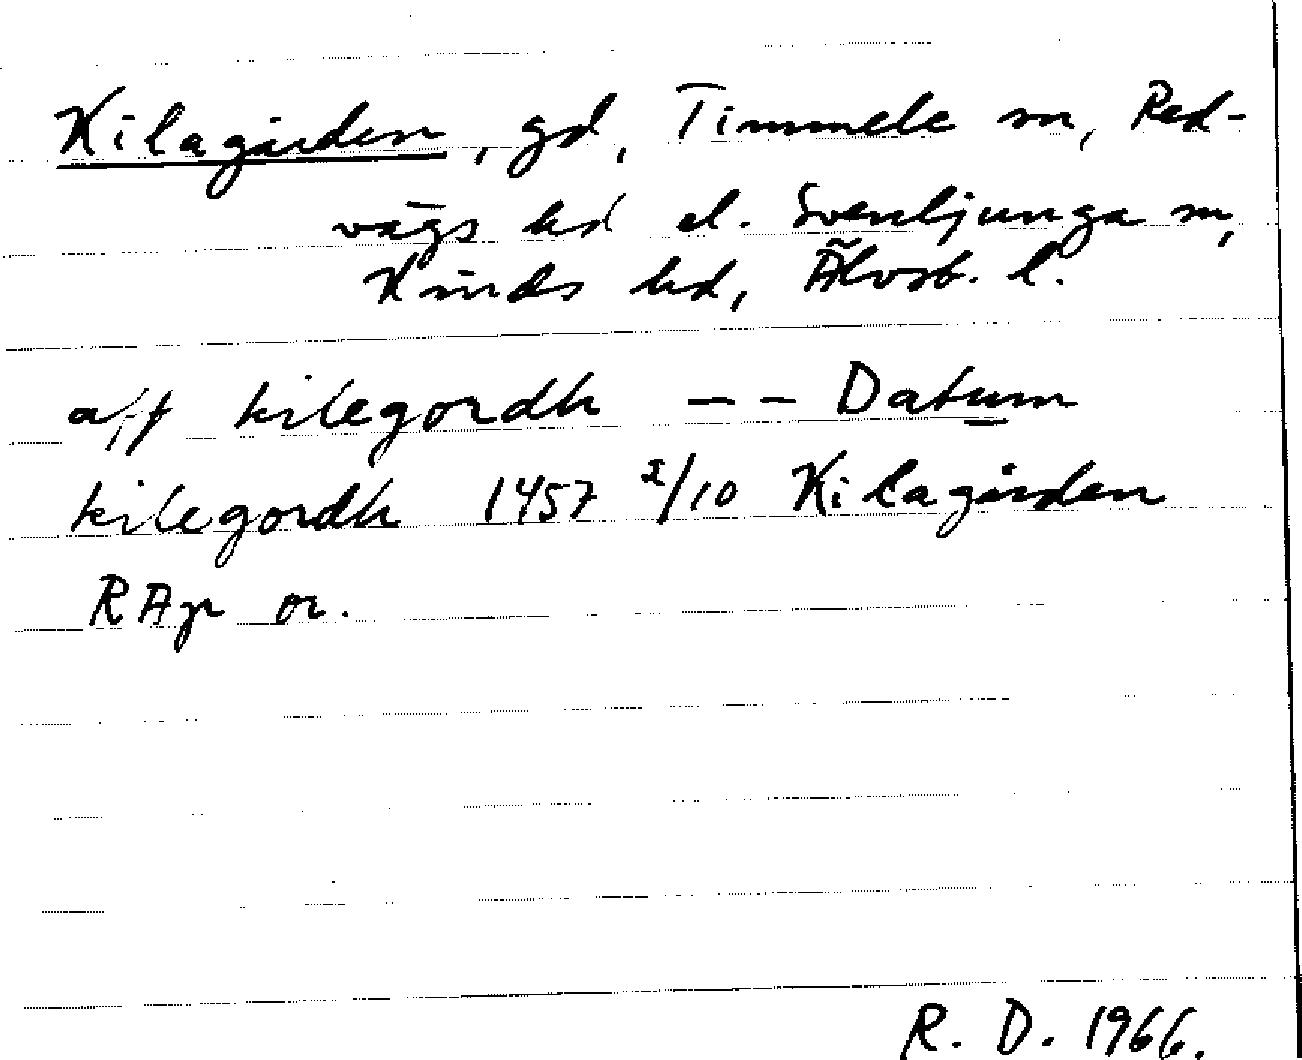 Kilagården, gd, Timmele sn, Red-
vägs hd el. Svenljunga sn,
Kinds hd, Älvsb. l.
aff kilegordh -- Datum
kilegordh 1457 2/10 Kilagården
RAp or.
R. D. 1966.